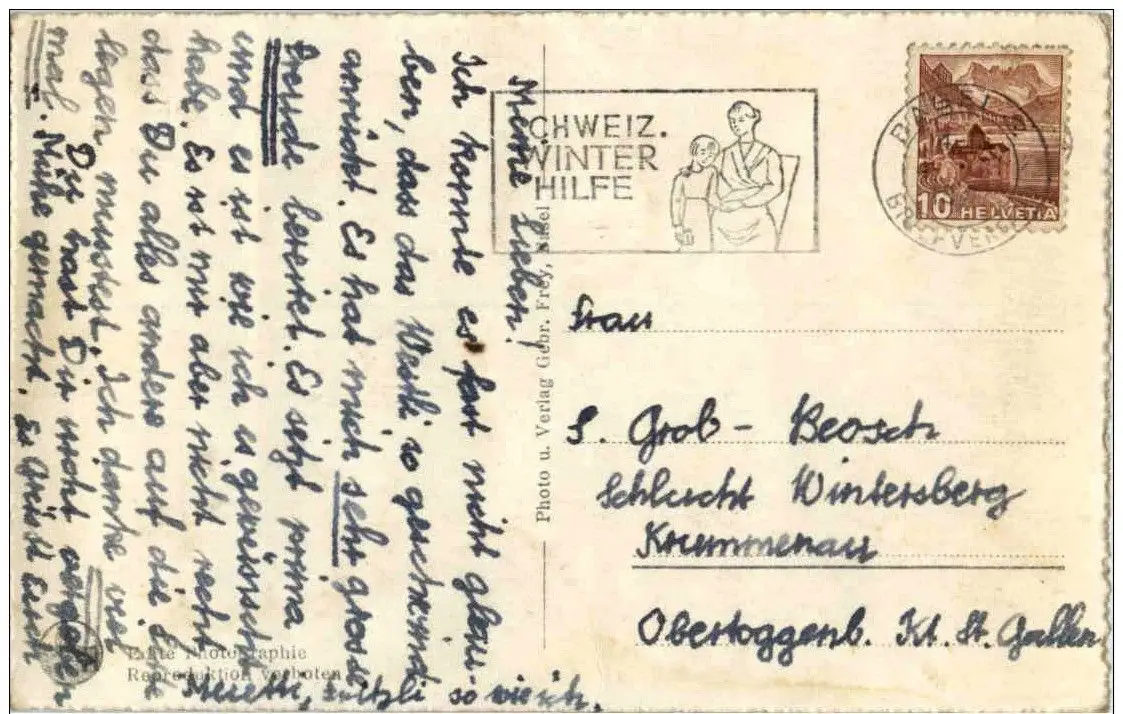 Meine Lieben!
Ich konnte es fast nicht glau-
ben, dass das Westli so geschwind
anrückt. Es hat mich sehr grosse
Freude bereitet. Es sitzt prima
und es ist wie ich es gewünscht
habe. Es ist mir aber nicht recht
dass Du alles anders auf die
legen musstest. Ich danke viel
mal. Du hast Dir nicht vergeben
Mühe gemacht. Es Grüsst Euch
so wie ich.
SCHWEIZ.
WINTER
HILFE
BASEL
BRIEFVERS
10 HELVETIA
Photo u. Verlag Gebr. Frey, Basel
Frau
S. Grob - Beosch
Schlucht Wintersberg
Krummenau
Obertoggenb. Kt. St. Gallen
Echte Photographie
Reproduktion verboten